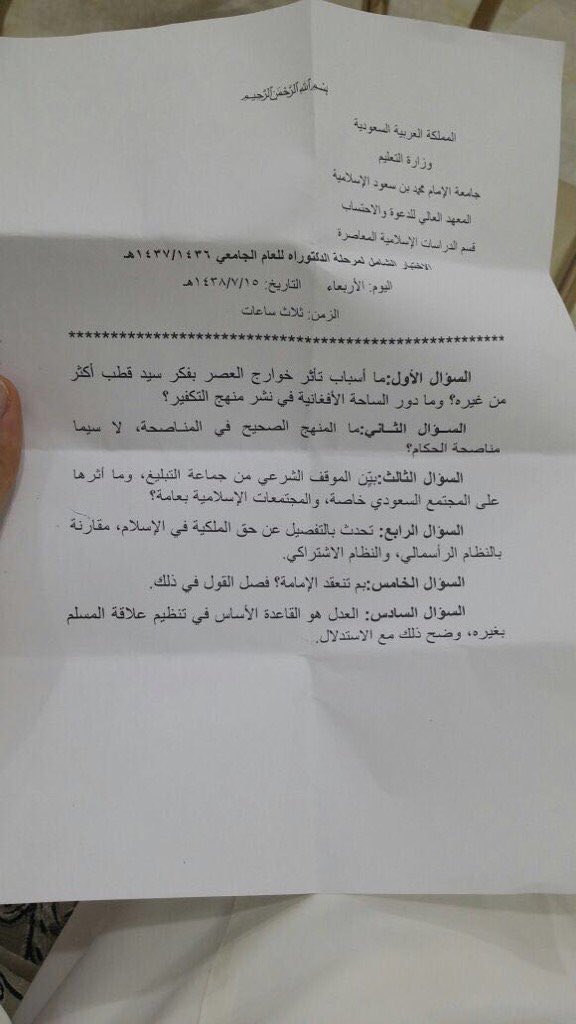 بسم الله الرحمن الرحيم
المملكة العربية السعودية
وزارة التعليم
جامعة الإمام محمد بن سعود الإسلامية
المعهد العالي للدعوة والاحتساب
قسم الدراسات الإسلامية المعاصرة
الاختبار الشامل لمرحلة الدكتوراه للعام الجامعي ١٤٣٧/١٤٣٦هـ
اليوم: الأربعاء التاريخ: ١٤٣٨/٧/١٥هـ
الزمن: ثلاث ساعات
****************************************************
السؤال الأول:ما أسباب تأثر خوارج العصر بفكر سيد قطب أكثر
من غيره؟ وما دور الساحة الأفغانية في نشر منهج التكفير؟
السؤال الثاني:ما المنهج الصحيح في المناصحة، لا سيما
مناصحة الحكام؟
السؤال الثالث:بيّن الموقف الشرعي من جماعة التبليغ، وما أثرها
على المجتمع السعودي خاصة، والمجتمعات الإسلامية بعامة؟
السؤال الرابع: تحدث بالتفصيل عن حق الملكية في الإسلام، مقارنة
بالنظام الرأسمالي، والنظام الاشتراكي.
السؤال الخامس:بم تنعقد الإمامة؟ فصل القول في ذلك.
السؤال السادس: العدل هو القاعدة الأساس في تنظيم علاقة المسلم
بغيره، وضح ذلك مع الاستدلال.